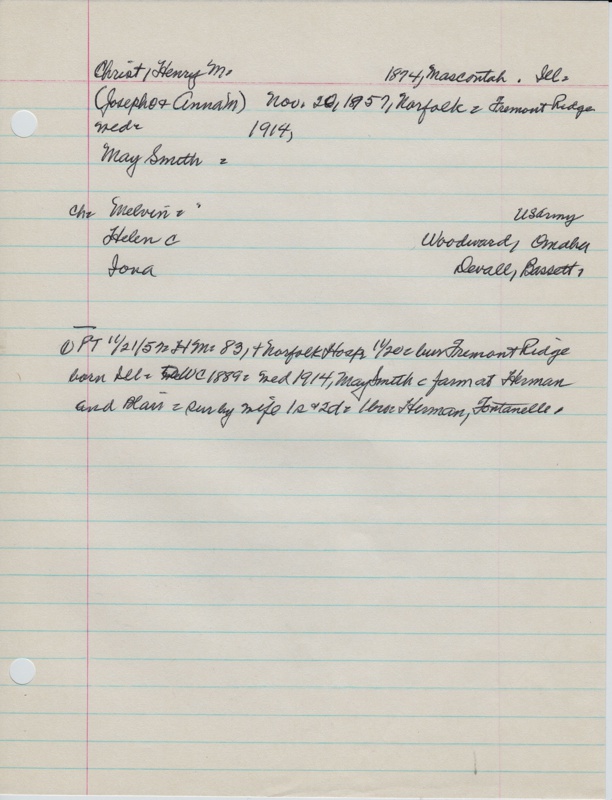 Christ, Henry M. 1874, Mascontah. Ill=
(Joseph & Anna M) Nov. 20, 1957, Norfolk = Fremont Ridge
med= 1914,
May Smith =
ch= Melvin = " US Army
Helen C Woodward, Omaha
Iona Devall, Bassett =
PT 11/21/57= HM= 83, + Norfolk Hosp 11/20 = bur Fremont Ridge
born Ill= WC 1889= med 1914, May Smith = farm at Herman
and Blair = sur by wife 1s & 2d= 1bro= Herman, Fontanelle.